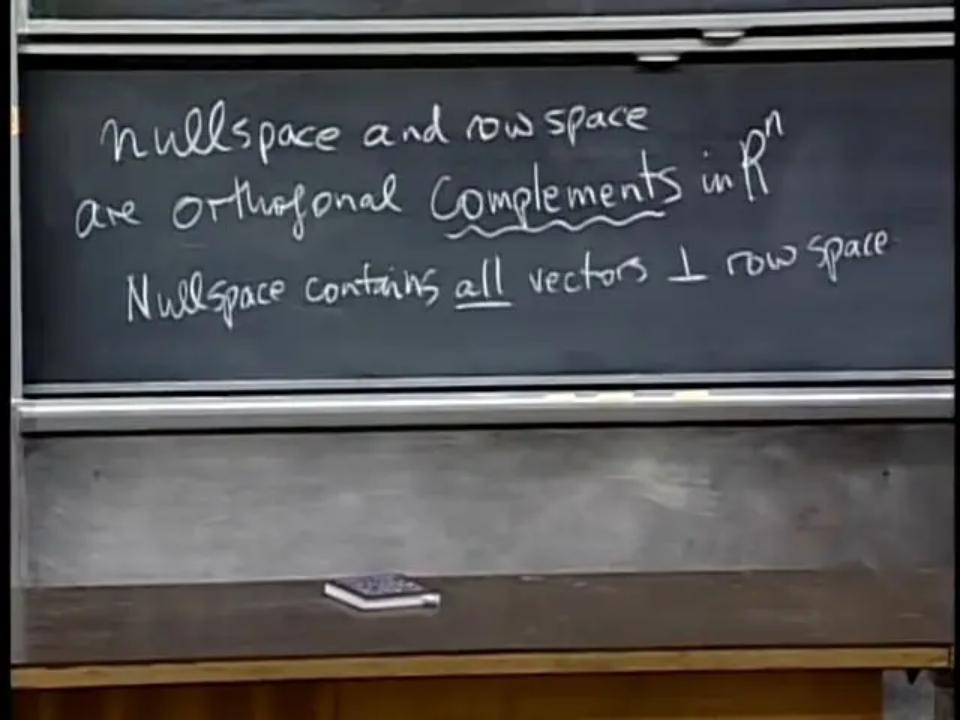 nullspace and row space
are orthogonal complements in Rⁿ
Nullspace contains all vectors ⊥ row space